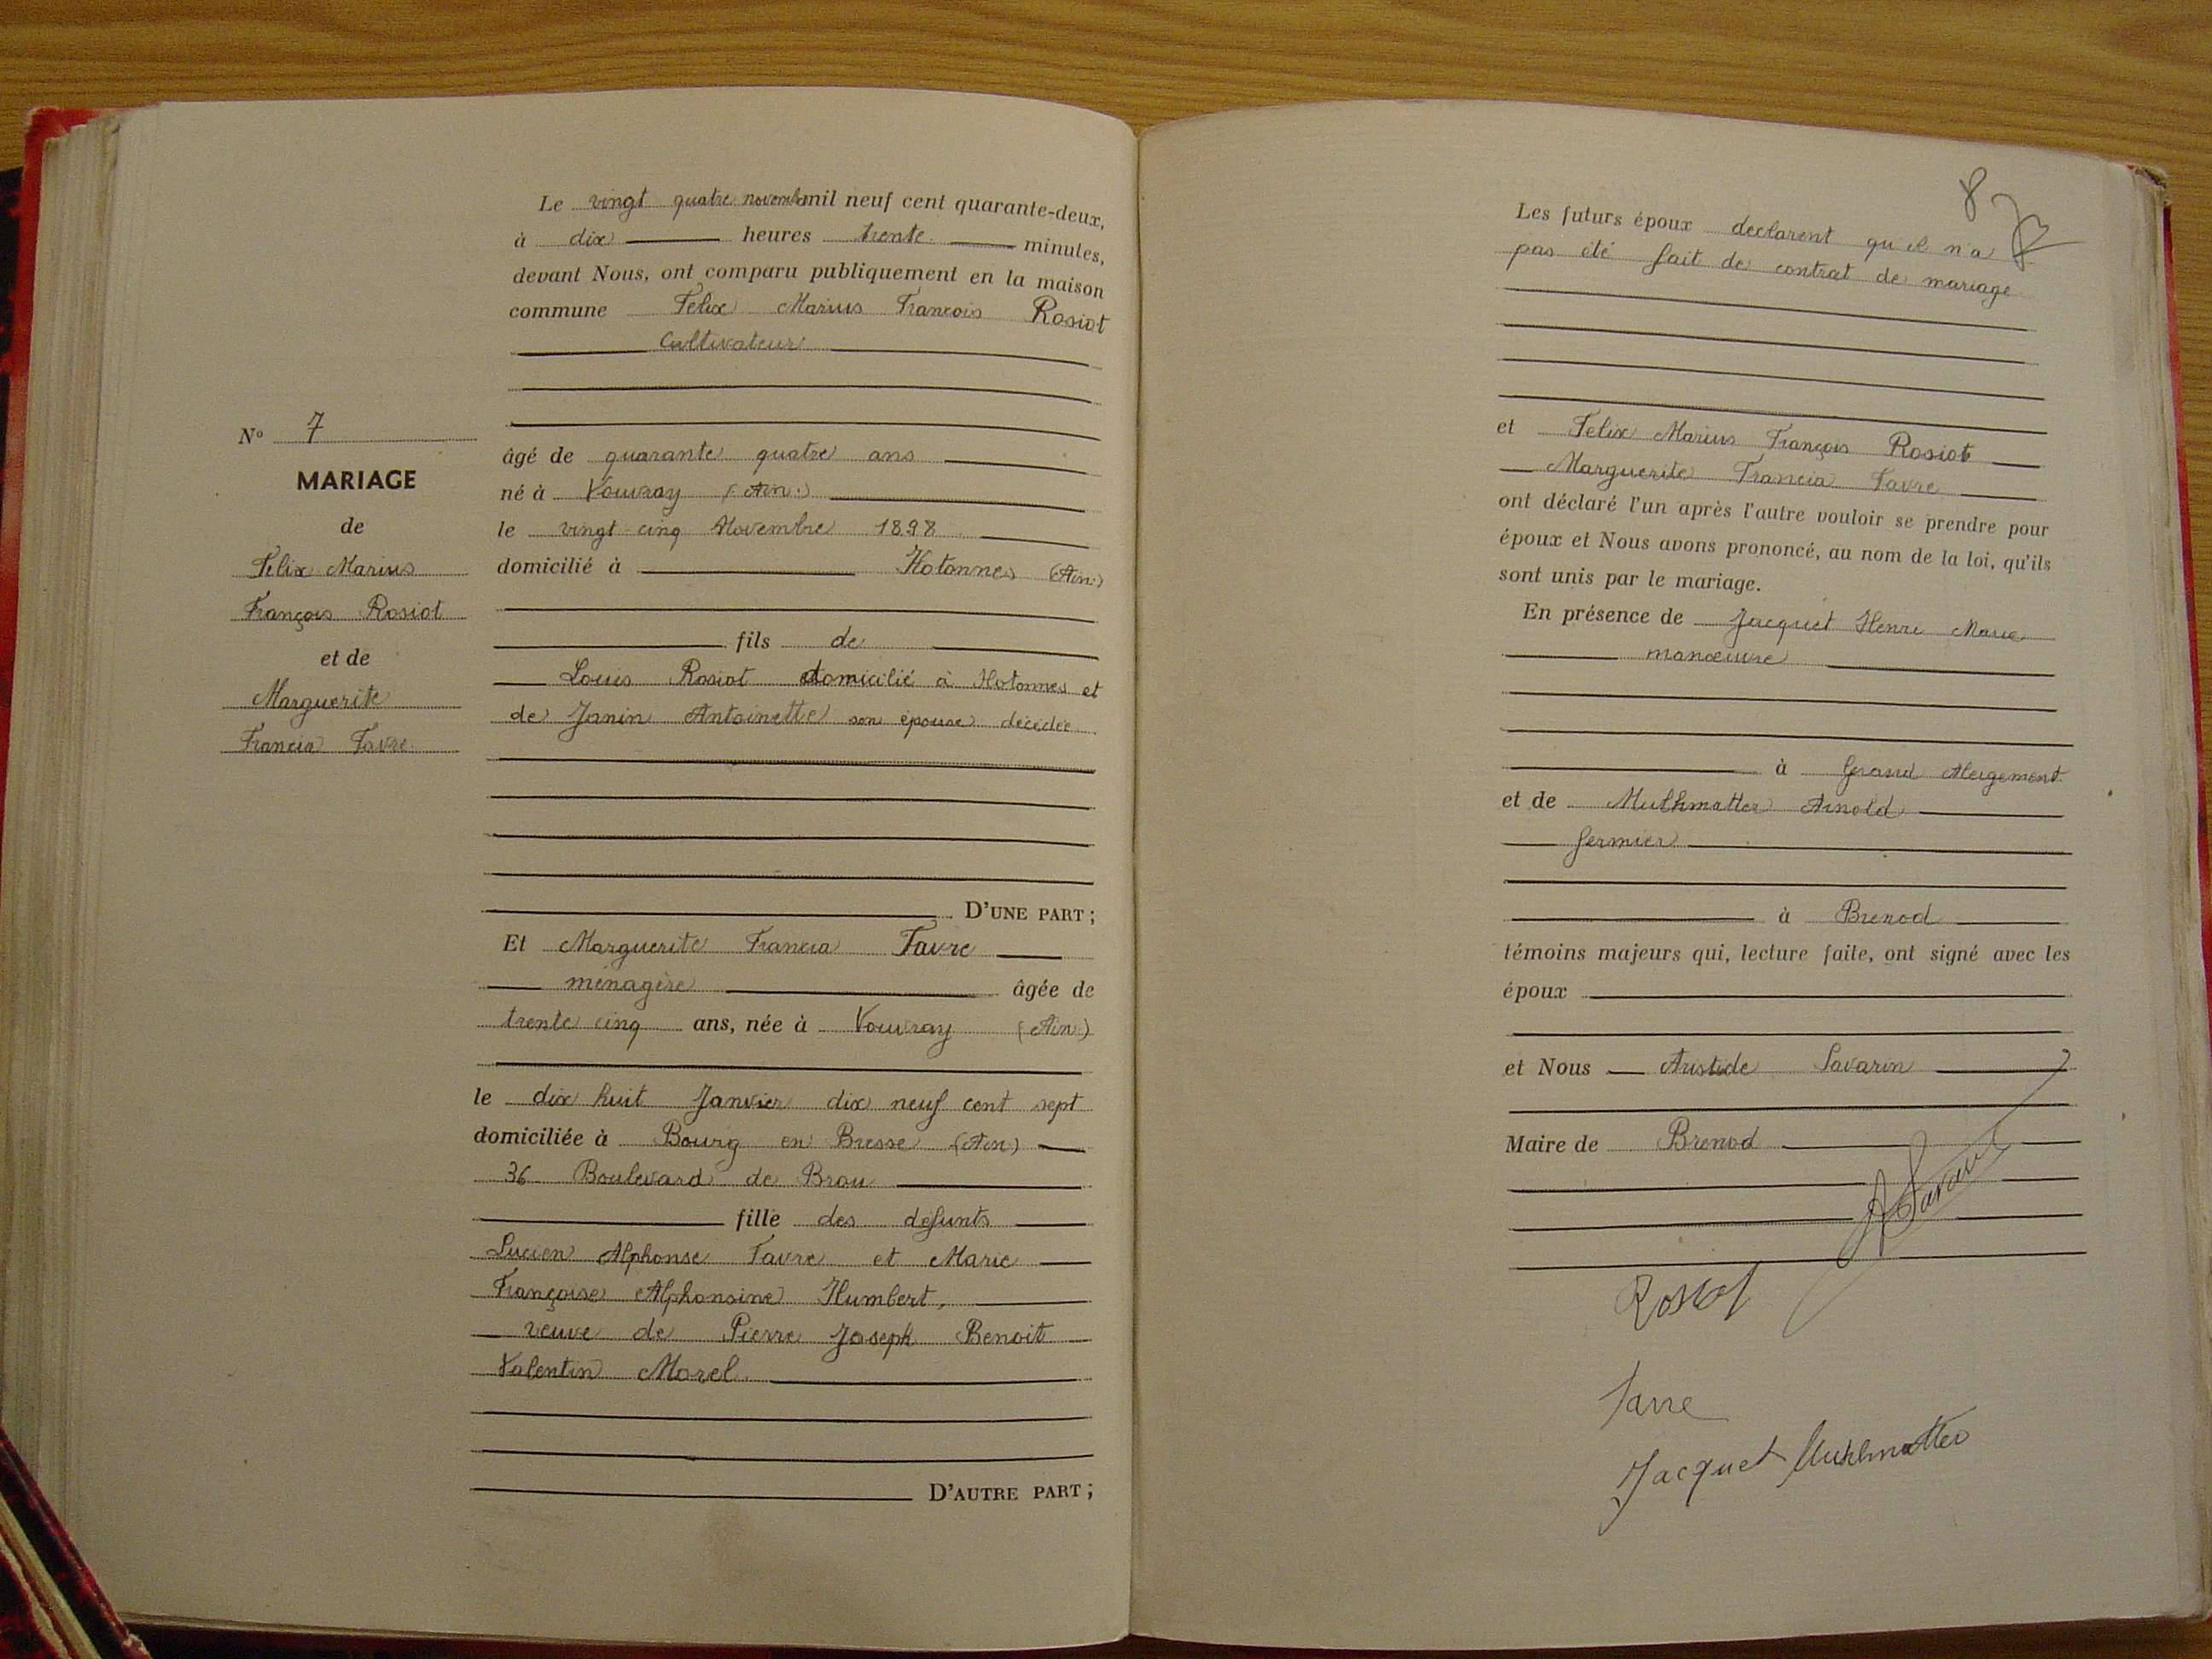 N° 7
MARIAGE
de
Felix Marius
François Rosiot
et de
Marguerite
Francia Favre
Le vingt quatre novembre mil neuf cent quarante-deux,
à dix heures trente minutes,
devant Nous, ont comparu publiquement en la maison
commune Felix Marius Francois Rosiot
Cultivateur
âgé de quarante quatre ans
né à Vouvray (Ain)
le vingt-cinq Novembre 1898
domicilié à Hotonnes (Ain)
fils de
Louis Rosiot domicilié à Hotonnes et
de Janin Antoinette son épouse décédée
D'UNE PART ;
Et Marguerite Francia Favre
ménagère âgée de
trente cinq ans, née à Vouvray (Ain)
le dix huit Janvier dix neuf cent sept
domiciliée à Bourg en Bresse (Ain)
36 Boulevard de Brou
fille des defunts
Lucien Alphonse Favre et Marie
Françoise Alphonsine Humbert,
veuve de Pierre Joseph Benoit
Valentin Morel
D'AUTRE PART ;
8
Les futurs époux declarent qu'il n'a
pas été fait de contrat de mariage
et Felix Marius François Rosiot
Marguerite Francia Favre
ont déclaré l'un après l'autre vouloir se prendre pour
époux et Nous avons prononcé, au nom de la loi, qu'ils
sont unis par le mariage.
En présence de Jacquet Henri Marie
manœuvre
à Grand Abergement
et de Muthmatter Arnold
fermier
à Brenod
témoins majeurs qui, lecture faite, ont signé avec les
époux
et Nous Aristide Savarin
Maire de Brenod
A Savarin
Rosiot
Favre
Jacquet Muhlmatter